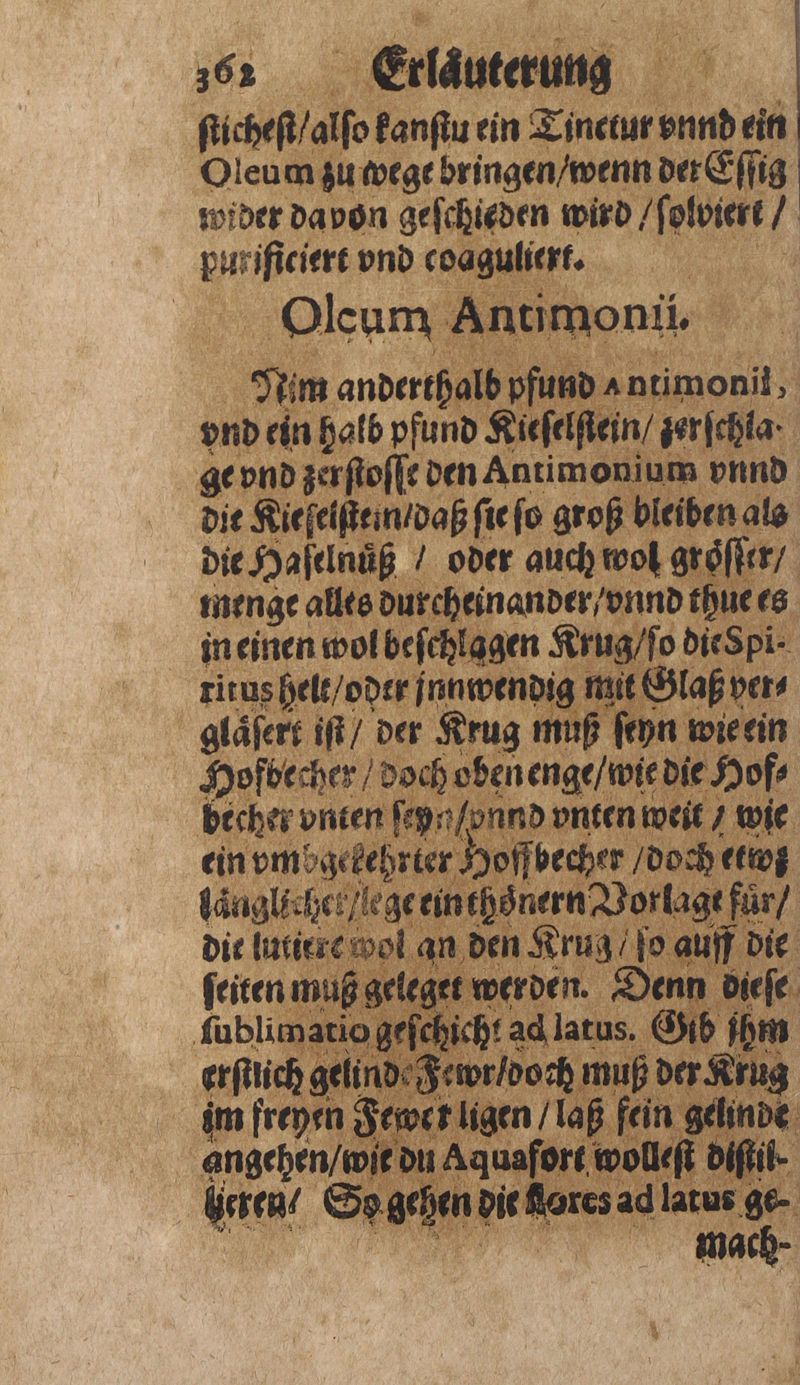 362 Erlåuterung
ſticheſt/alſo kanſtu ein Tinctur vnnd ein
Oleum zu wege bringen/wenn der Eſſig
wider davon geſchieden wird / ſolviert /
purificiert vnd coaguliert.
Oleum Antimonii.
Nim anderthalb pfund Antimonii,
vnd ein halb pfund Kieſelſtein/ zerſchla-
ge vnd zerſtoſſe den Antimonium vnnd
die Kieſelſtein/daß ſie ſo groß bleiben als
die Haſelnůß / oder auch wol grôſſer/
menge alles durcheinander/vnnd thue es
in einen wol beſchlagen Krug/ſo die Spi-
ritus helt/oder jnnwendig mit Glaß ver-
glåſert iſt / der Krug muß ſeyn wie ein
Hofbecher / doch oben enge/wie die Hof-
becher vnten ſeyn/vnnd vnten weit / wie
ein vmbgekehrter Hoffbecher /doch etwz
långlicher/lege ein thônern Vorlage fůr/
die lutiere wol an den Krug / ſo auff die
ſeiten muß geleget werden. Denn dieſe
ſublimatio geſchicht ad latus. Gib jhm
erſtlich gelinde Fewr/doch muß der Krug
im freyen Fewer ligen / laß fein gelinde
angehen/wie du Aquafort wolleſt diſtil-
lieren/ So gehen die flores ad latus ge-
mach-